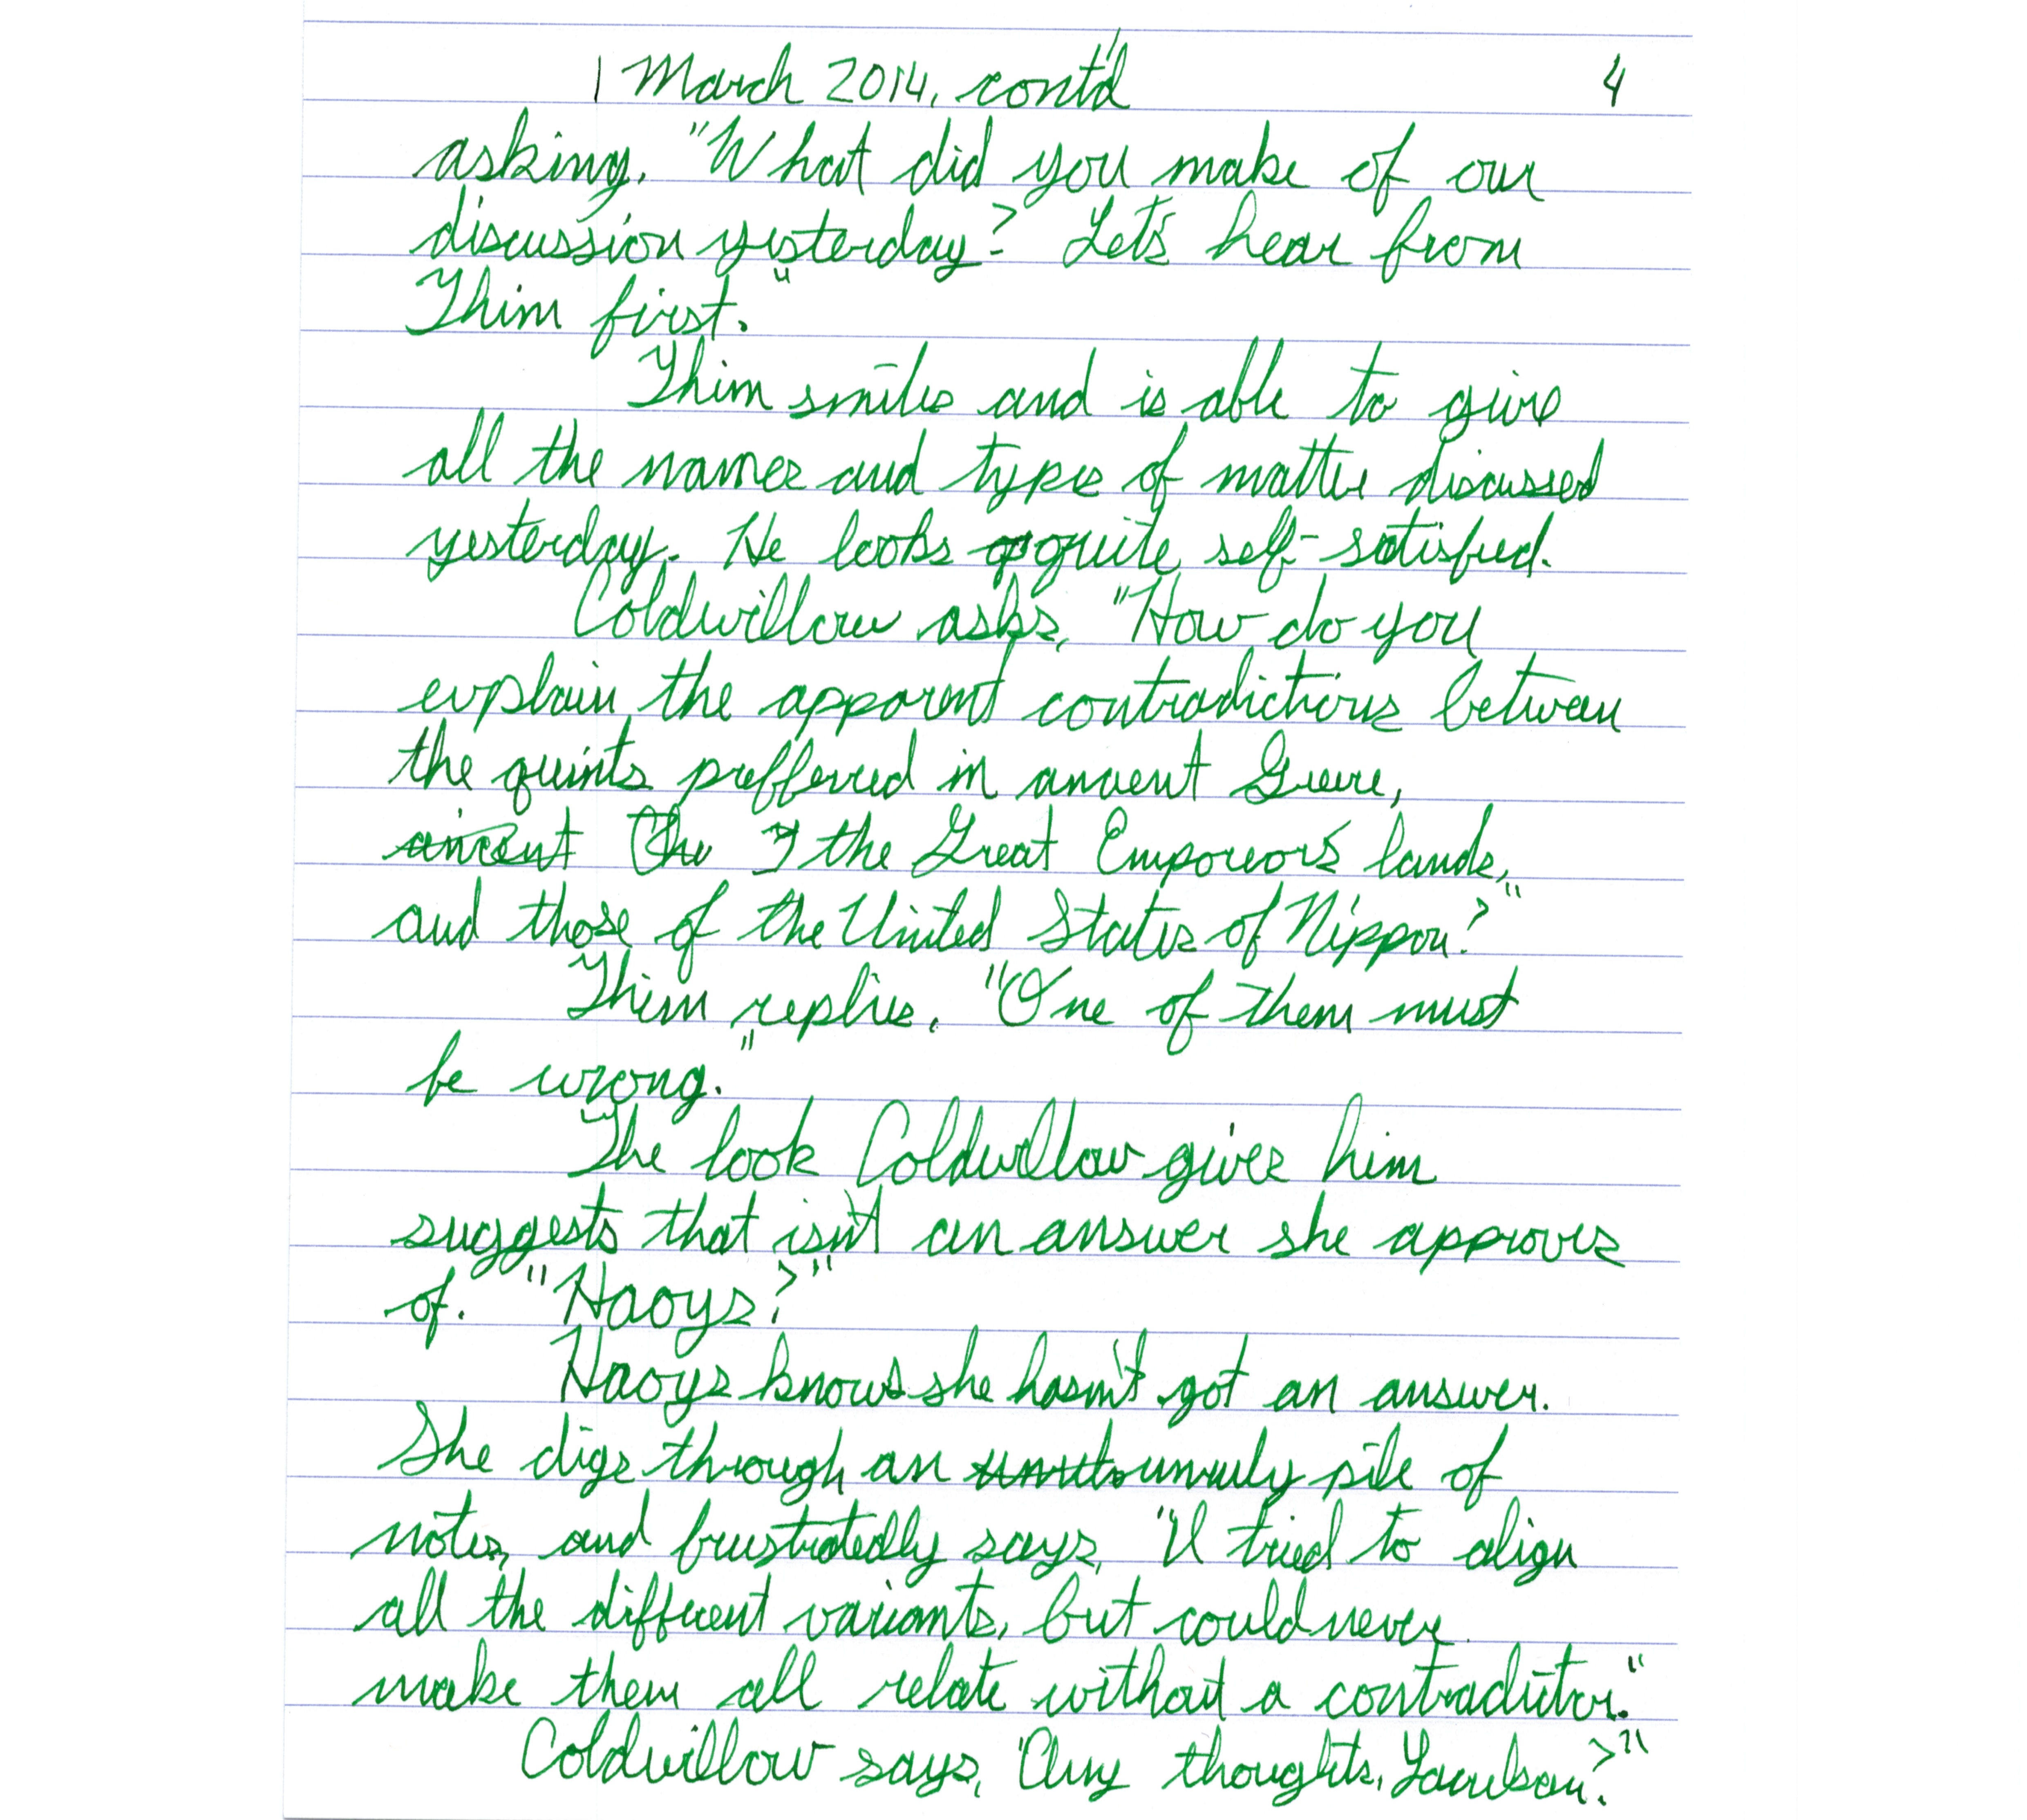 1 March 2014, cont'd 4
asking. "What did you make of our
discussion yesterday? Let's hear from
Thim first."
Thim smiles and is able to give
all the names and types of matter discussed
yesterday. He looks quite self-satisfied.
Coldwillow asks, "How do you
explain the apparent contradictions between
the quints prefferred in ancient Greece,
ancient the Great Emporeor's lands,
and those of the United States of Nippon?"
Thim replies. "One of them must
be wrong."
The look Coldwillow gives him
suggests that isn't an answer she approves
of. "Haoys?"
Haoys knows she hasn't got an answer.
She digs through an unruly pile of
notes, and frustratedly says, "I tried to align
all the different variants, but could never
make them all relate without a contradiction."
Coldwillow says, "Any thoughts,